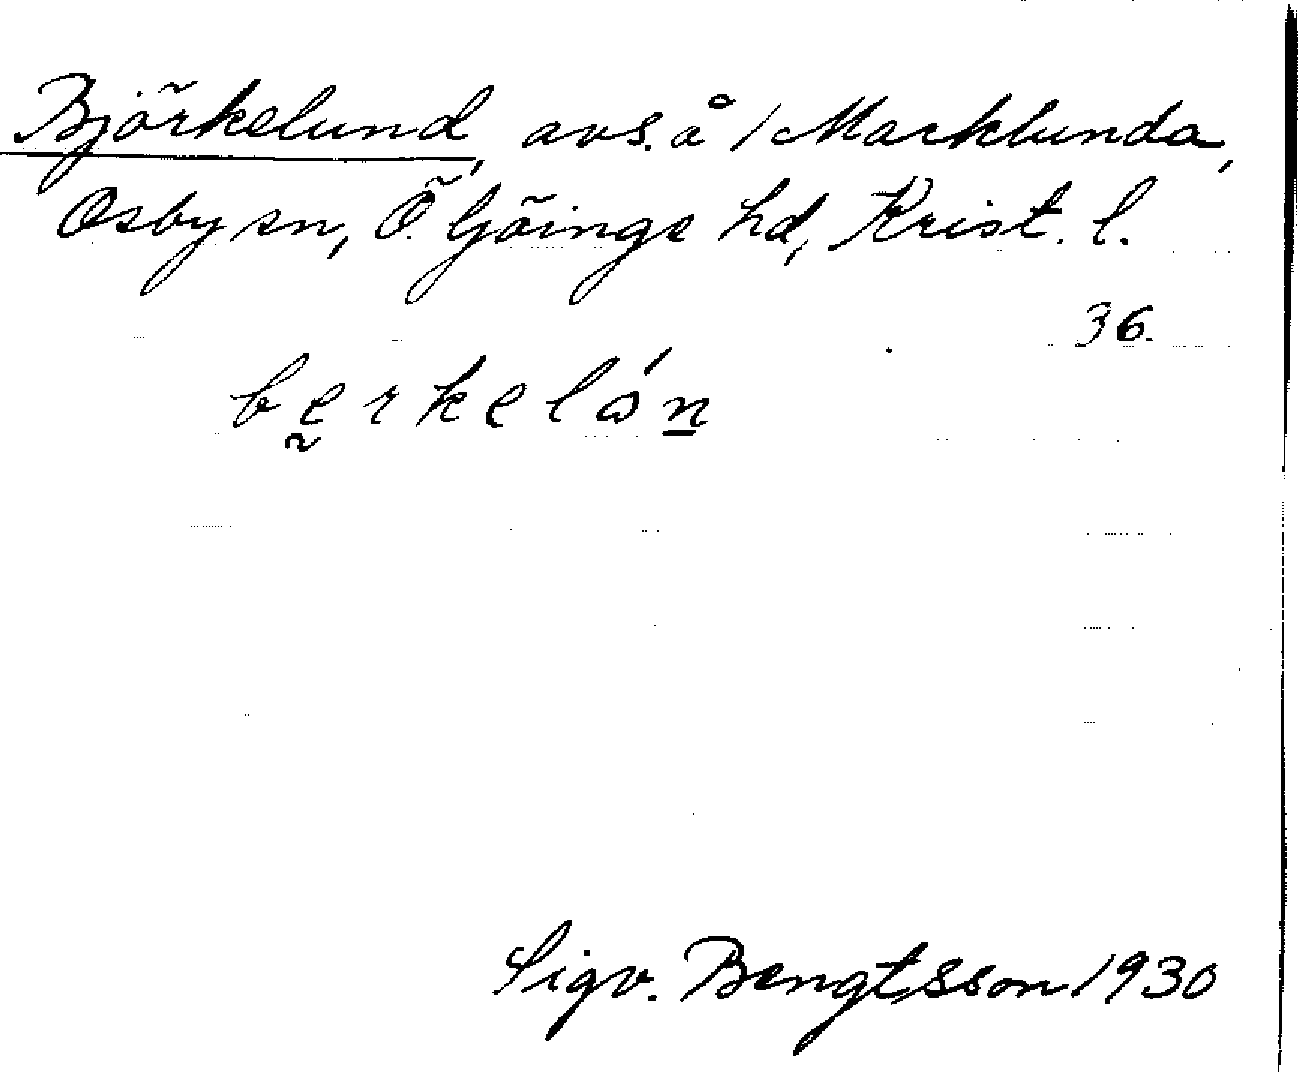 Björkelund, avs. å 1 Marklunda,
Osby sn, Ö. Göinge hd, Krist. l.
36.
bḛrkelón̲
Sigv. Bengtsson 1930